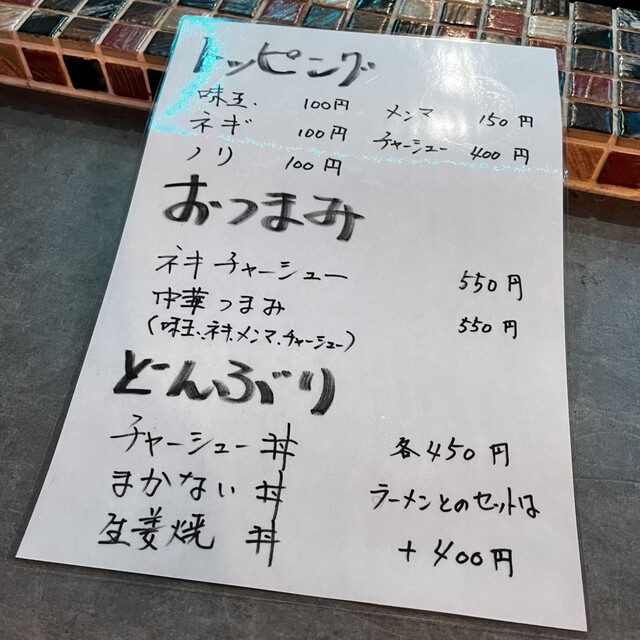 トッピング
味玉 100円 メンマ 150円
ネギ 100円 チャーシュー 400円
ノリ 100円
おつまみ
ネギチャーシュー 550円
中華つまみ 550円
(味玉、ネギ、メンマ、チャーシュー)
どんぶり
チャーシュー丼 各450円
まかない丼 ラーメンとのセットは
生姜焼丼 +400円